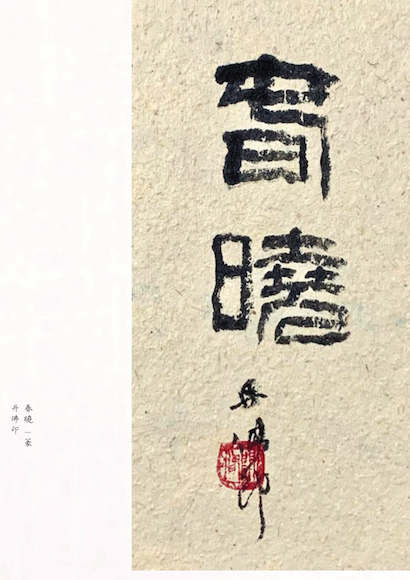 春曉
丹佛印
春曉｜篆
丹佛印